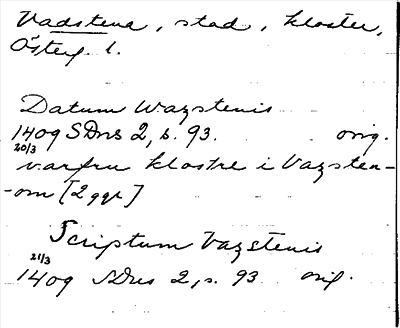 Vadstena, stad, kloster,
Österg. l.
Datum Wazstenis
1409 SDns 2, s. 93. orig.
20/3
varfru klostre i Vazsten-
-om [2 ggr]
Scriptum Vazstenis
21/3
1409 SDns 2, s. 93 orig.